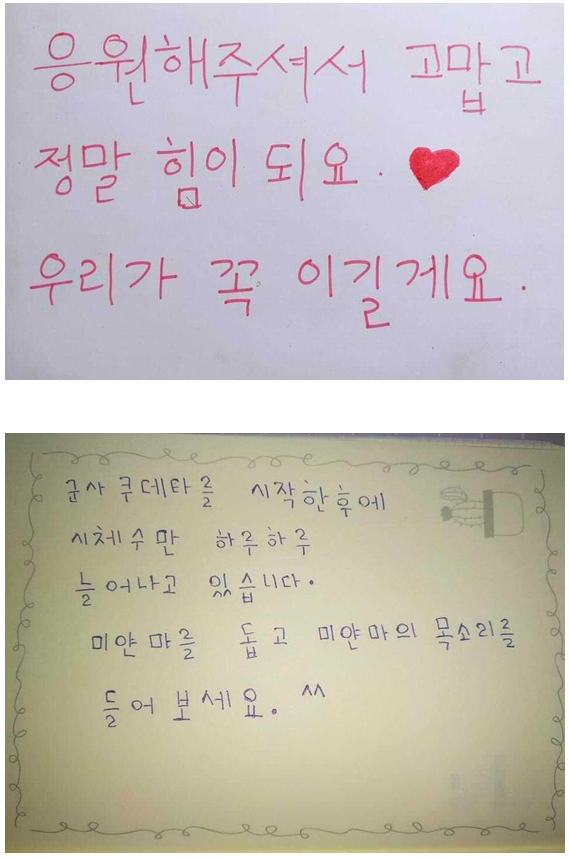 응원해주셔서 고맙고
정말 힘이 되요. ♥
우리가 꼭 이길게요.
군사 쿠데타를 시작한후에
시체수만 하루하루
늘어나고 있습니다.
미얀마를 돕고 미얀마의 목소리를
들어 보세요. ^^